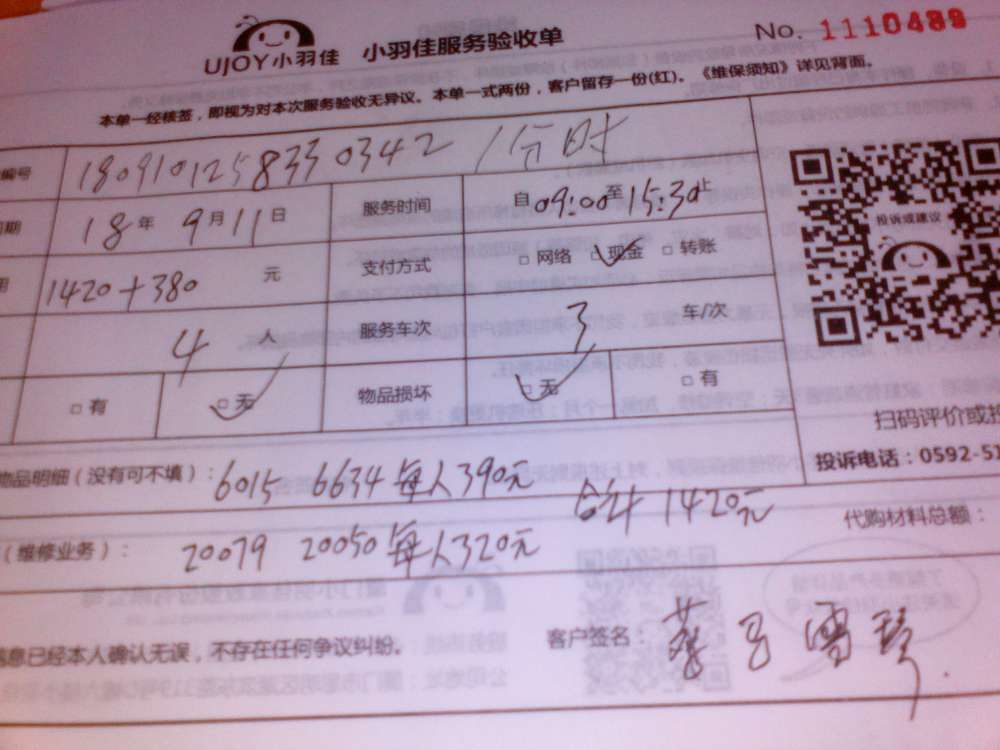 UJOY小羽佳 小羽佳服务验收单 No. 1110489
本单一经核签，即视为对本次服务验收无异议。本单一式两份，客户留存一份(红)。《维保须知》详见背面。
编号 180910125833 0342 /分时
期 18年 9月11日 服务时间 自09:00至15:30止
用 1420+380 元 支付方式 □网络 □现金 □转账
4 人 服务车次 3 车/次
□有 □无 物品损坏 □无 □有
投诉或建议
扫码评价或投
投诉电话：0592-51
物品明细（没有可不填）：6015 6634 每人390元 合计 1420元
（维修业务）：20079 20050 每人320元 代购材料总额：
信息已经本人确认无误，不存在任何争议纠纷。 客户签名：